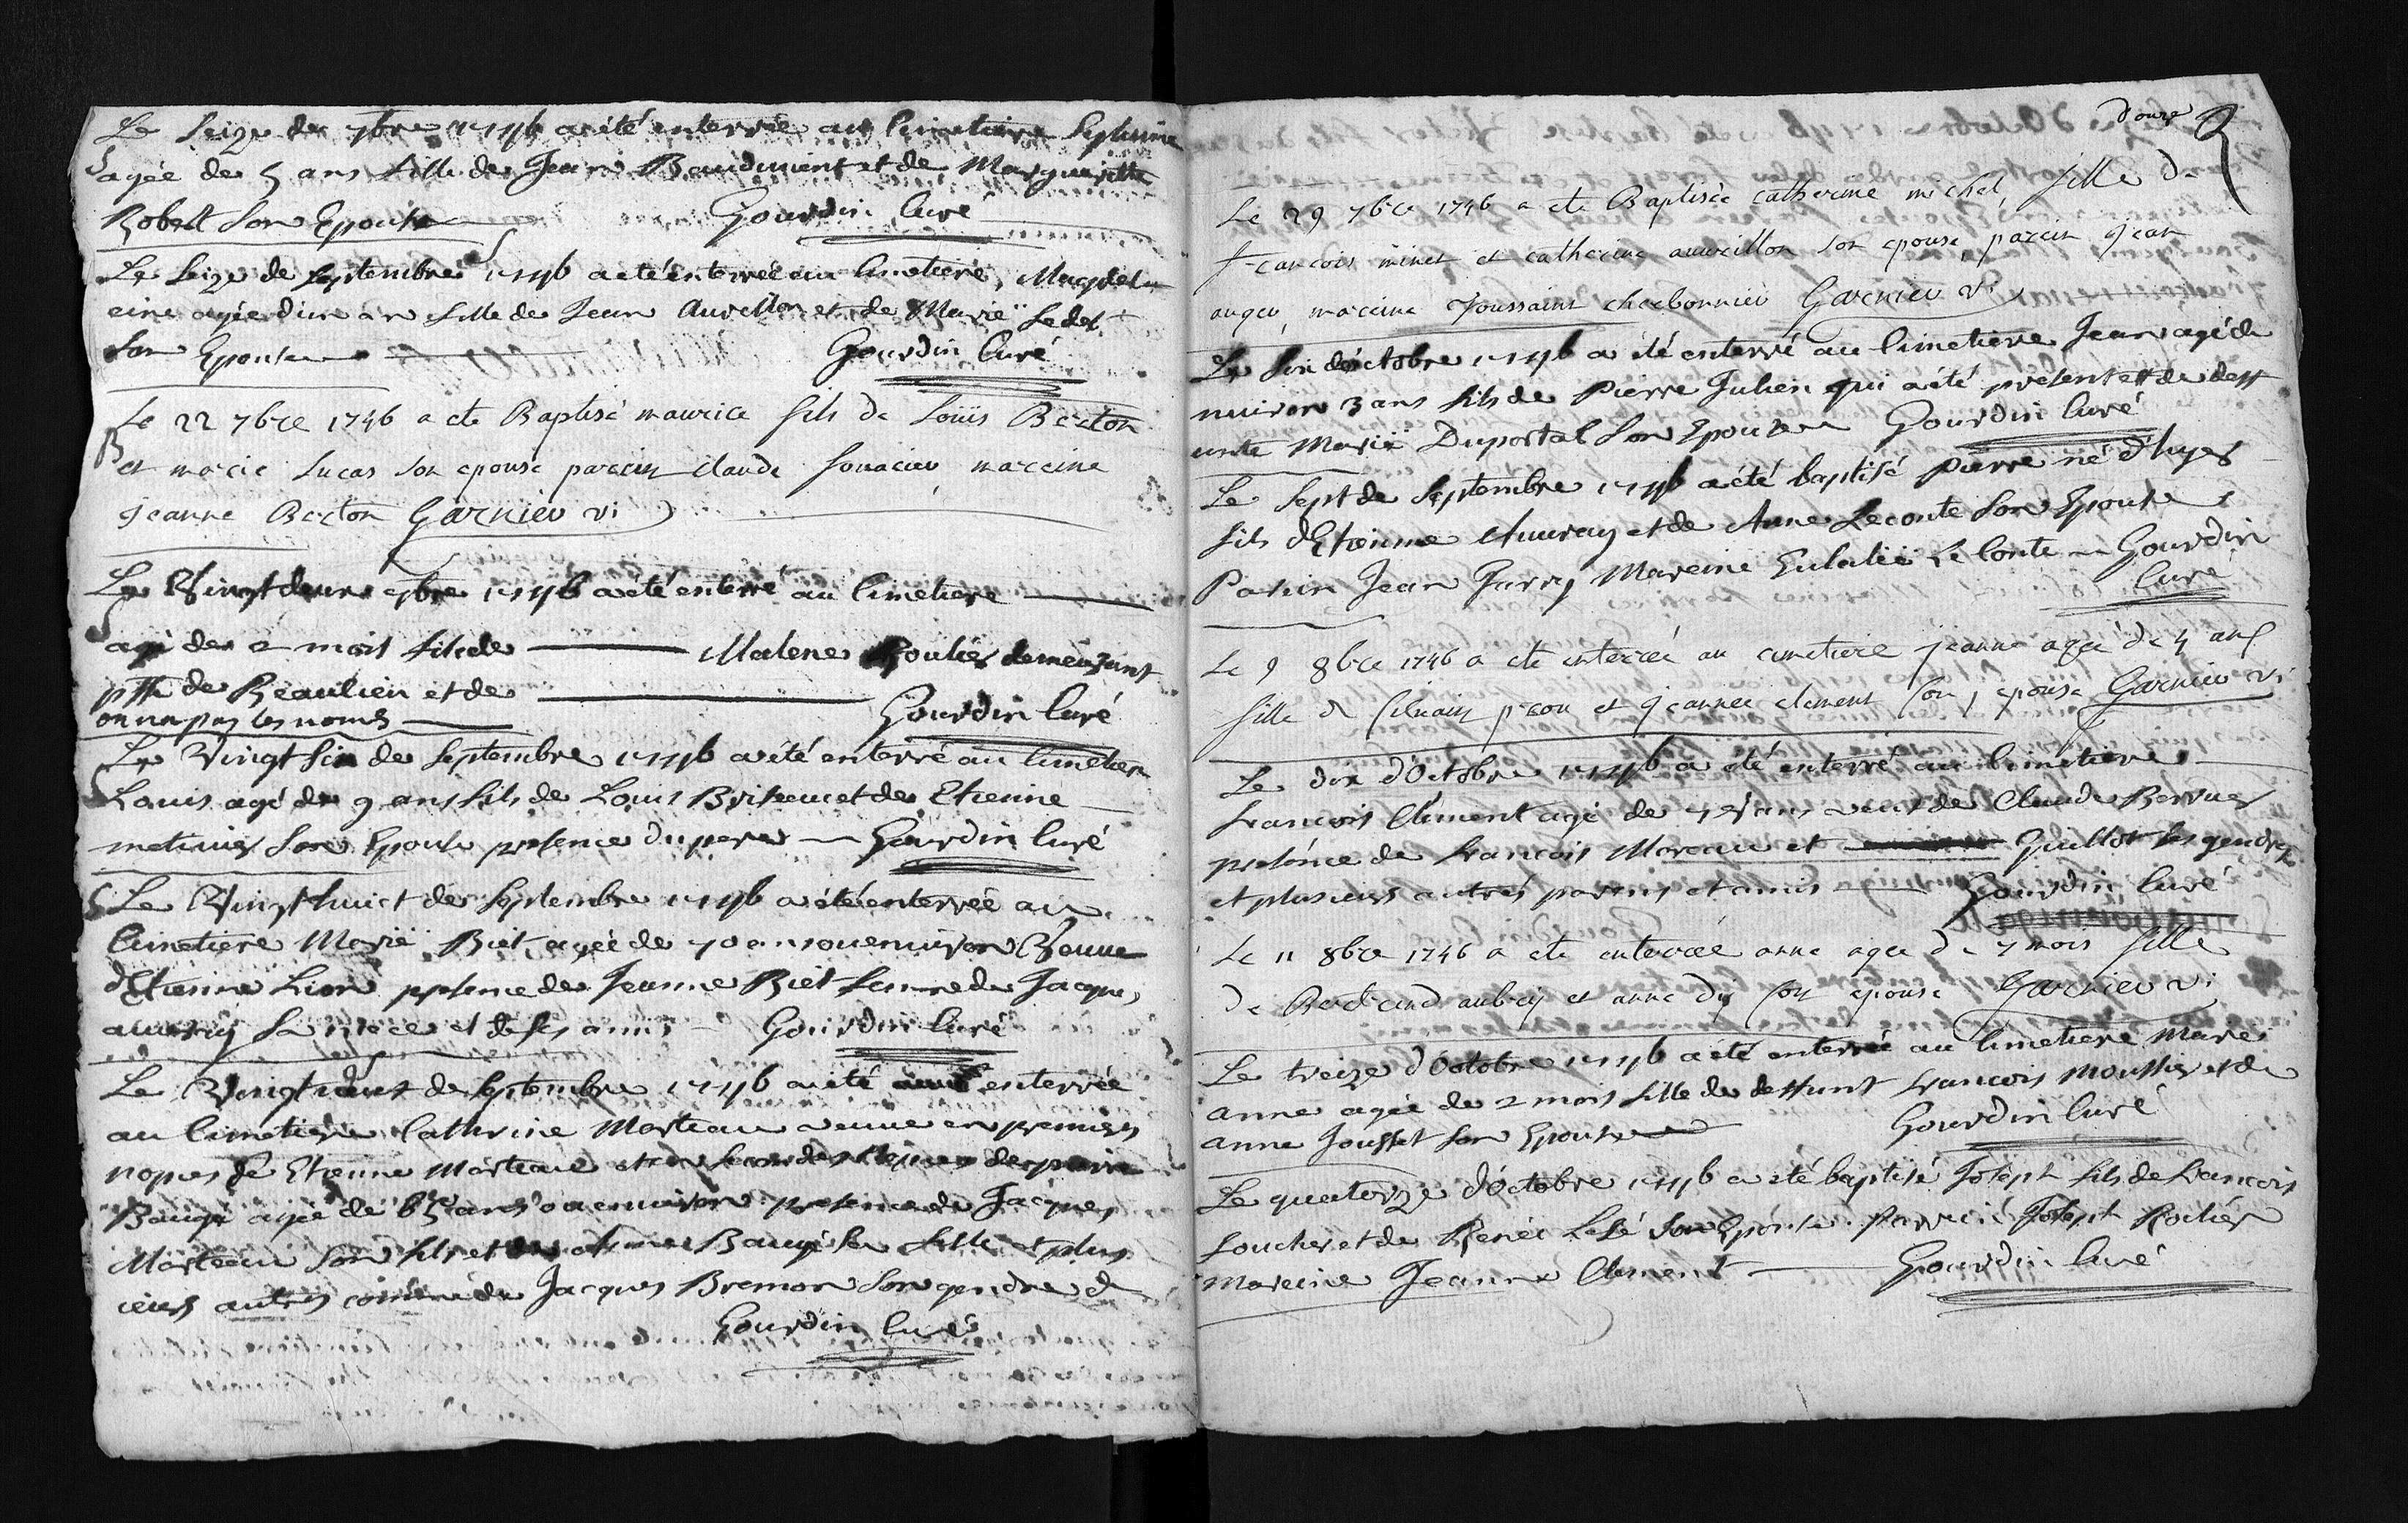 Le Seize de 7bre 1746 a été enterrée au Cimetiere
agée de 5 ans fille de Jean Baudiment et de Margueritte
Robert Son Epouse Gourdin Curé
Le Seize de Septembre 1746 a été enterrée au Cimetiere, Magdel
eine agée d'un an fille de Jean Aurellon et de Marie
Son Epouse Gourdin Curé
Le 22 7bre 1746 a ete Baptisé maurice fils de Louis Berton
B et marie Lucas son epouse parein claude mareine
jeanne Berton Garnier vi
Le Vingt deux 7bre 1746 a été enterré au Cimetiere
agé de 2 mois fils de Roulier
de Beaulieu et de
on na pas les noms Gourdin Curé
Le Vingt Six de Septembre 1746 a été enterré au Cimetiere
Louis agé de 9 ans fils de Louis et de Etienne
Son Epouse presence du pere Gourdin Curé
S Le Vingt huict de Septembre 1746 a été enterrée au
Cimetiere Marie Biet agée de 70 ans ou environ Veuve
d'Etienne Lion presence de Jeanne Biet femme de Jacques
auvray Sa niece et de ses amis Gourdin Curé
Le de Septembre 1746 a été enterrée
au Cimetiere Cathrine Marteau veuve en premiers
nopces de Etienne Marteau et en Secondes
Baugé agée de 63 ans ou environ presence de Jacques
Marteau Son fils et de Baugé Sa fille et plus
ieurs autres comme de Jacques Bremon Son gendre &
Gourdin Curé
douze
Le 29 7bre 1746 a ete Baptisée catherine michel, fille de
francois minet et catherine auveillon son epouse, parein jean
auger, mareine Toussaint charbonnier Garnier vi
Le Six d'octobre 1746 a été enterré au Cimetiere Jean agé de
nuiron 3 ans fils de Pierre Julien qui a été present et de deff
unte Marie Duportal Son Epouse Gourdin Curé
Le Sept de Septembre 1746 a été baptisé pierre né d'hyer
fils d'Etienne Auvray et de Anne Leconte Son Epouse
Parein Jean Mareine Eulalie Le Conte Gourdin
Curé
Le 9 8bre 1746 a ete enterrée au cimetiere jeanne agée de 4 ans
fille de silvain et jeanne clement son epouse Garnier vi
Le dix d'Octobre 1746 a été enterré au Cimetiere
francois Clément agé de ans veuf de Claude
présence de francois Moreau et Guillot ses gendres
et plusieurs autres parens et amis Gourdin Curé
Le 11 8bre 1746 a ete enterrée anne agée de 7 mois fille
de Bertrand aubry et anne son epouse Garnier vi
Le treize d'Octobre 1746 a été enterrée au Cimetiere Marie
anne agée de 2 mois fille de deffunt francois Moussier et de
anne Jousset Son Epouse Gourdin Curé
Le quatorze d'Octobre 1746 a été baptisé Joseph fils de francois
foucher et de Renée Son Epouse. Joseph
Mareine Jeanne Clement Gourdin Curé